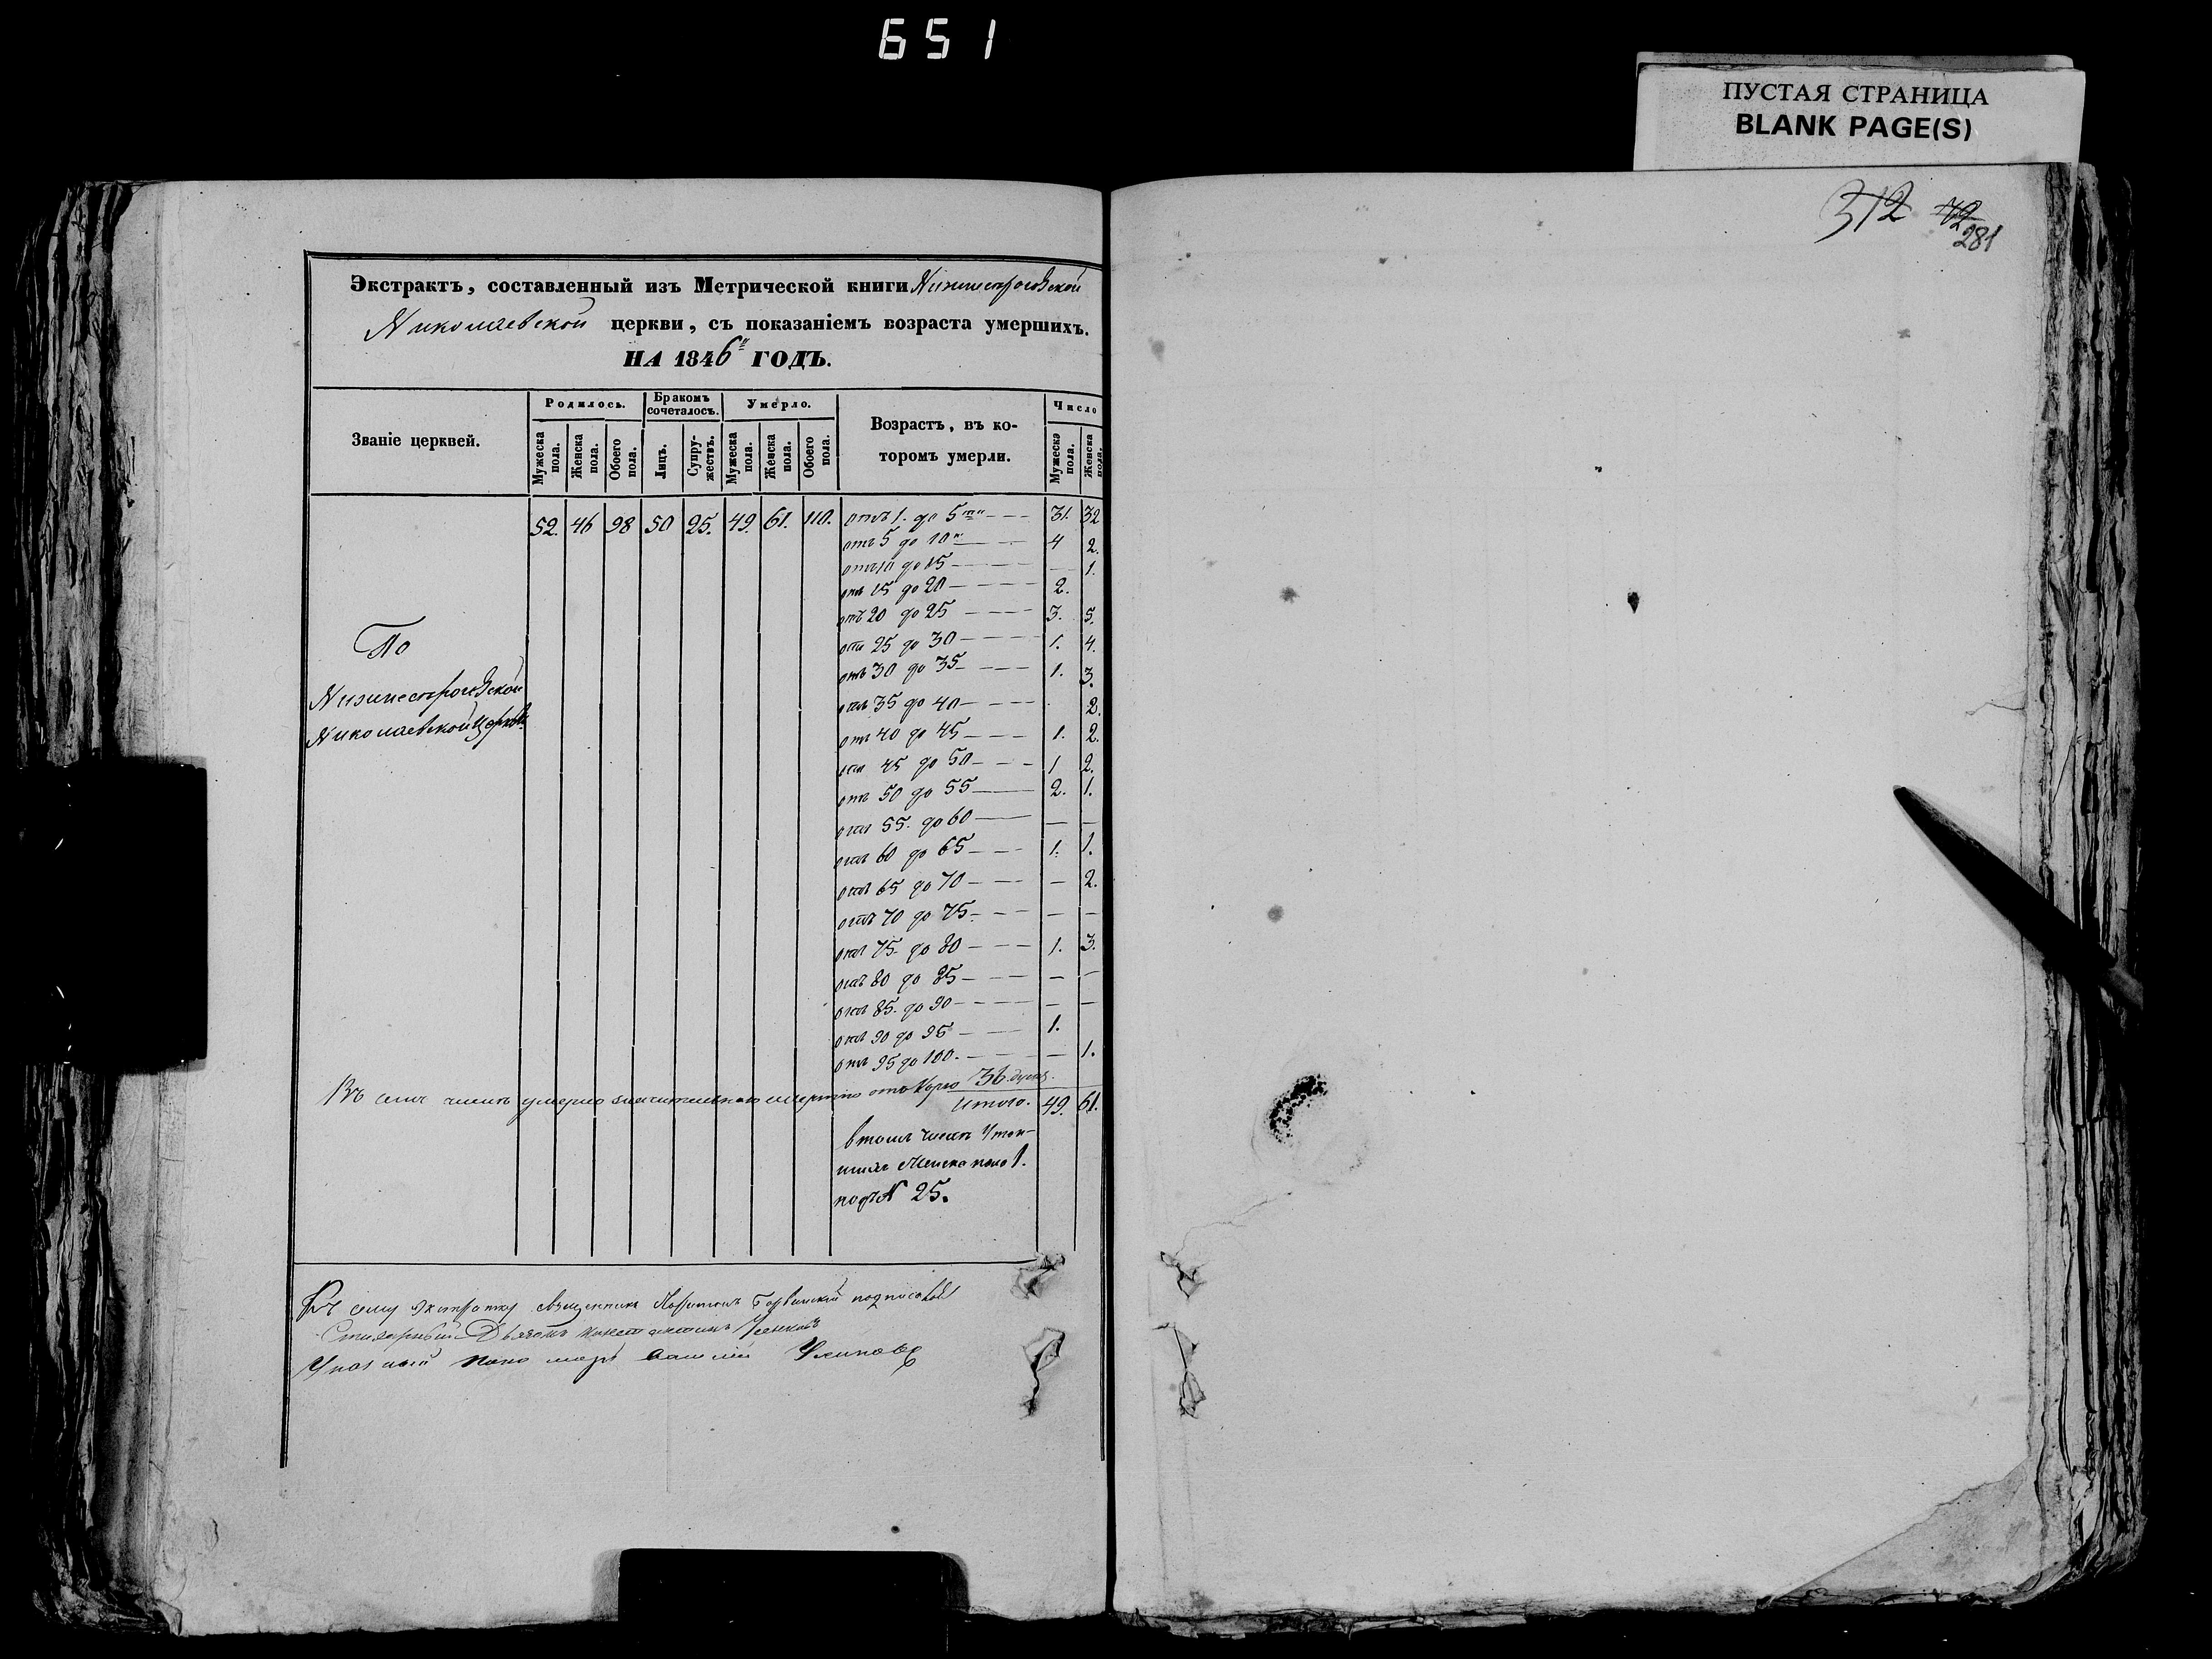 651
ПУСТАЯ СТРАНИЦА
BLANK PAGE(S)
312 72
281
Экстрактъ, составленный изъ Метрической книги
Николаевской церкви, съ показаніемъ возраста умершихъ.
НА 1846й ГОДЪ.
Званіе церквей.
Родилось.
Бракомъ сочеталось.
Умерло.
Возрастъ, въ которомъ умерли.
Число
Мужеска пола.
Женска пола.
Обоего пола.
Лицъ.
Супружествъ.
Мужеска пола.
Женска пола.
Обоего пола.
Мужеска пола.
Женска пола.
52. 46 98 50 25. 49. 61. 110. отъ 1. до 5ти 31. 32
отъ 5 до 10 4 2.
отъ 10 до 15 — 1.
отъ 15 до 20 2.
отъ 20 до 25 3. 5.
отъ 25 до 30 1. 4.
отъ 30 до 35 1. 3.
отъ 35 до 40 2.
отъ 40 до 45 1. 2.
отъ 45 до 50 1 2.
отъ 50 до 55 2. 1.
отъ 55. до 60 — —
отъ 60 до 65 1. 1.
отъ 65 до 70 — 2.
отъ 70 до 75 — —
отъ 75 до 80 1. 3.
отъ 80 до 85 — —
отъ 85. до 90 — —
отъ 90 до 95 1.
отъ 95 до 100. — 1.
По
Николаевской церкви
Въ семъ числѣ умерло 36
Итого. 49. 61.
в томъ числѣ
пола 1.
подъ N 25.
Къ сему экстракту священникъ
Указный пономарь